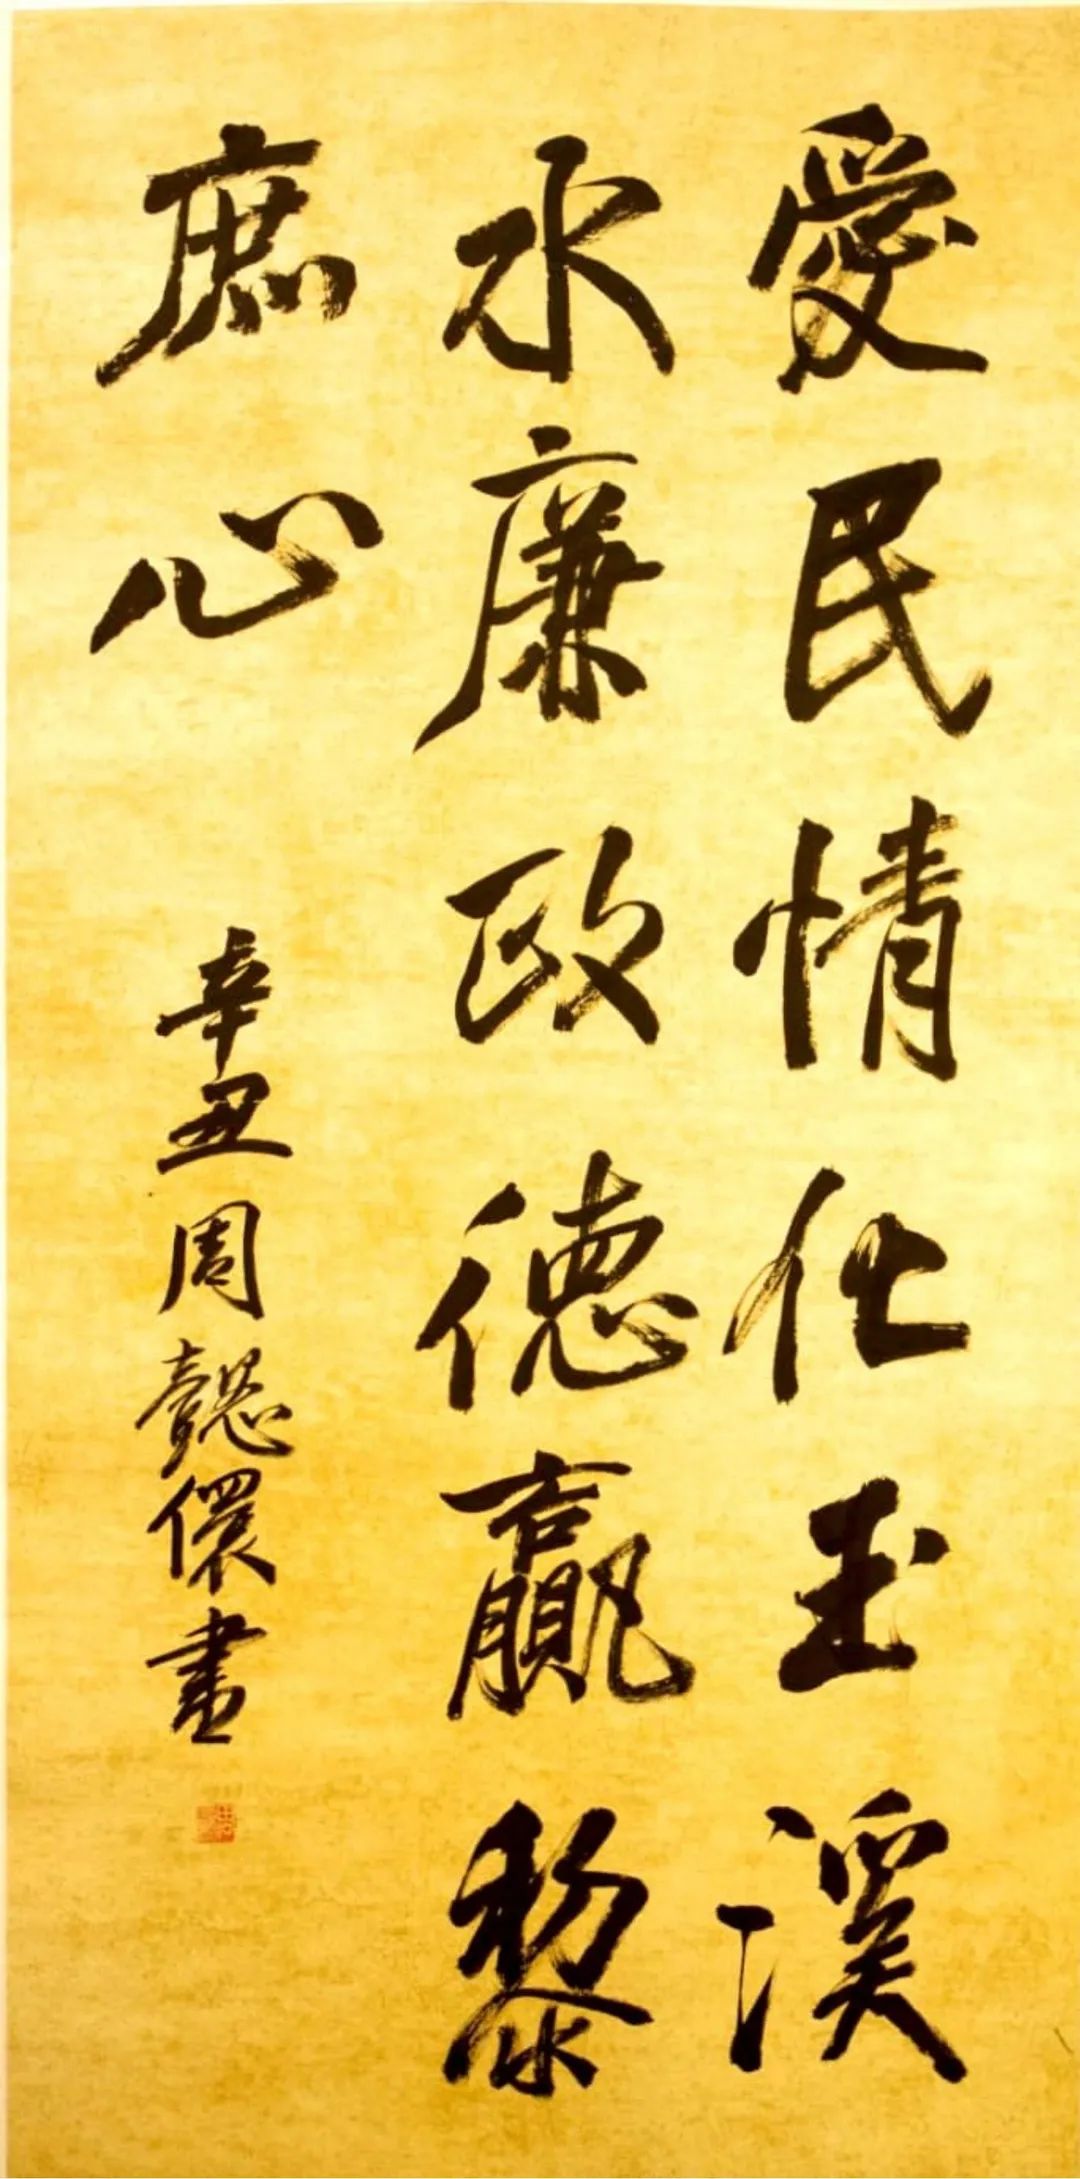 愛民情化玉溪
水廉政德贏黎
庶心
辛丑周懿儇書